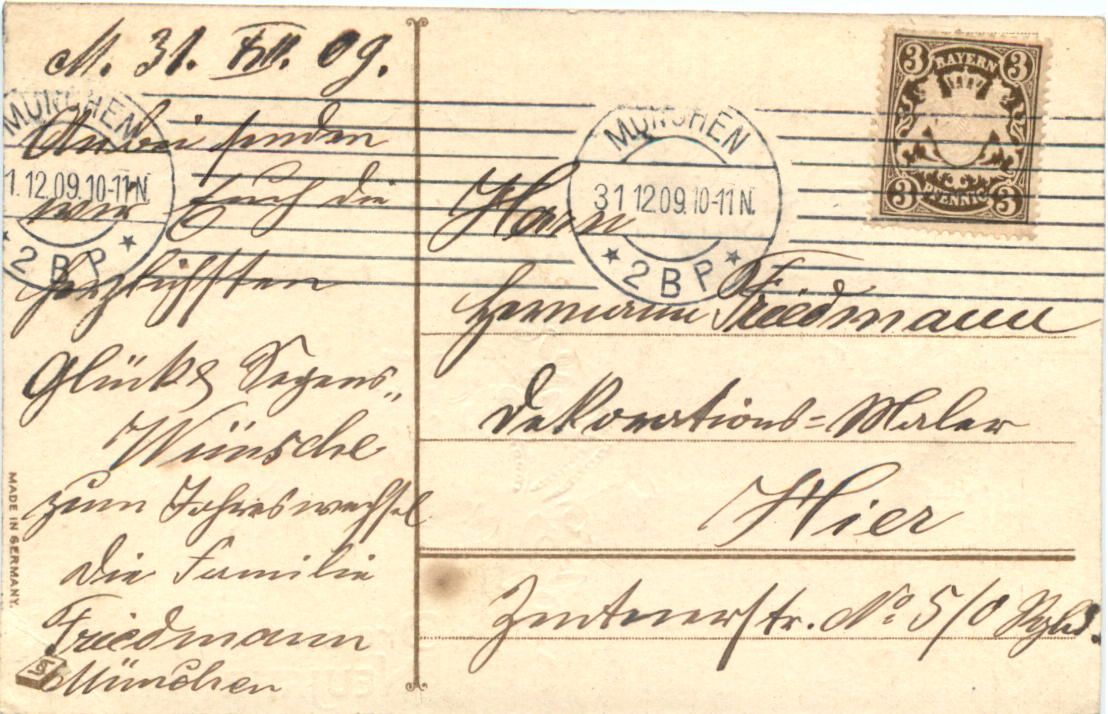 M. 31. XII. 09.
Anbei senden
wir Euch die
herzlichsten
Glücks Segens„
Wünsche
zum Jahreswechsel
die Familie
Friedmann
München
MÜNCHEN
1.12.09.10-11N.
* 2 B P *
MÜNCHEN
31 12.09.10-11N.
* 2 B P *
3 BAYERN 3
3 PFENNIG 3
Herrn
Hermann Friedmann
Dekorations=Maler
Hier
Zentnerstr. No 5/0
MADE IN GERMANY.